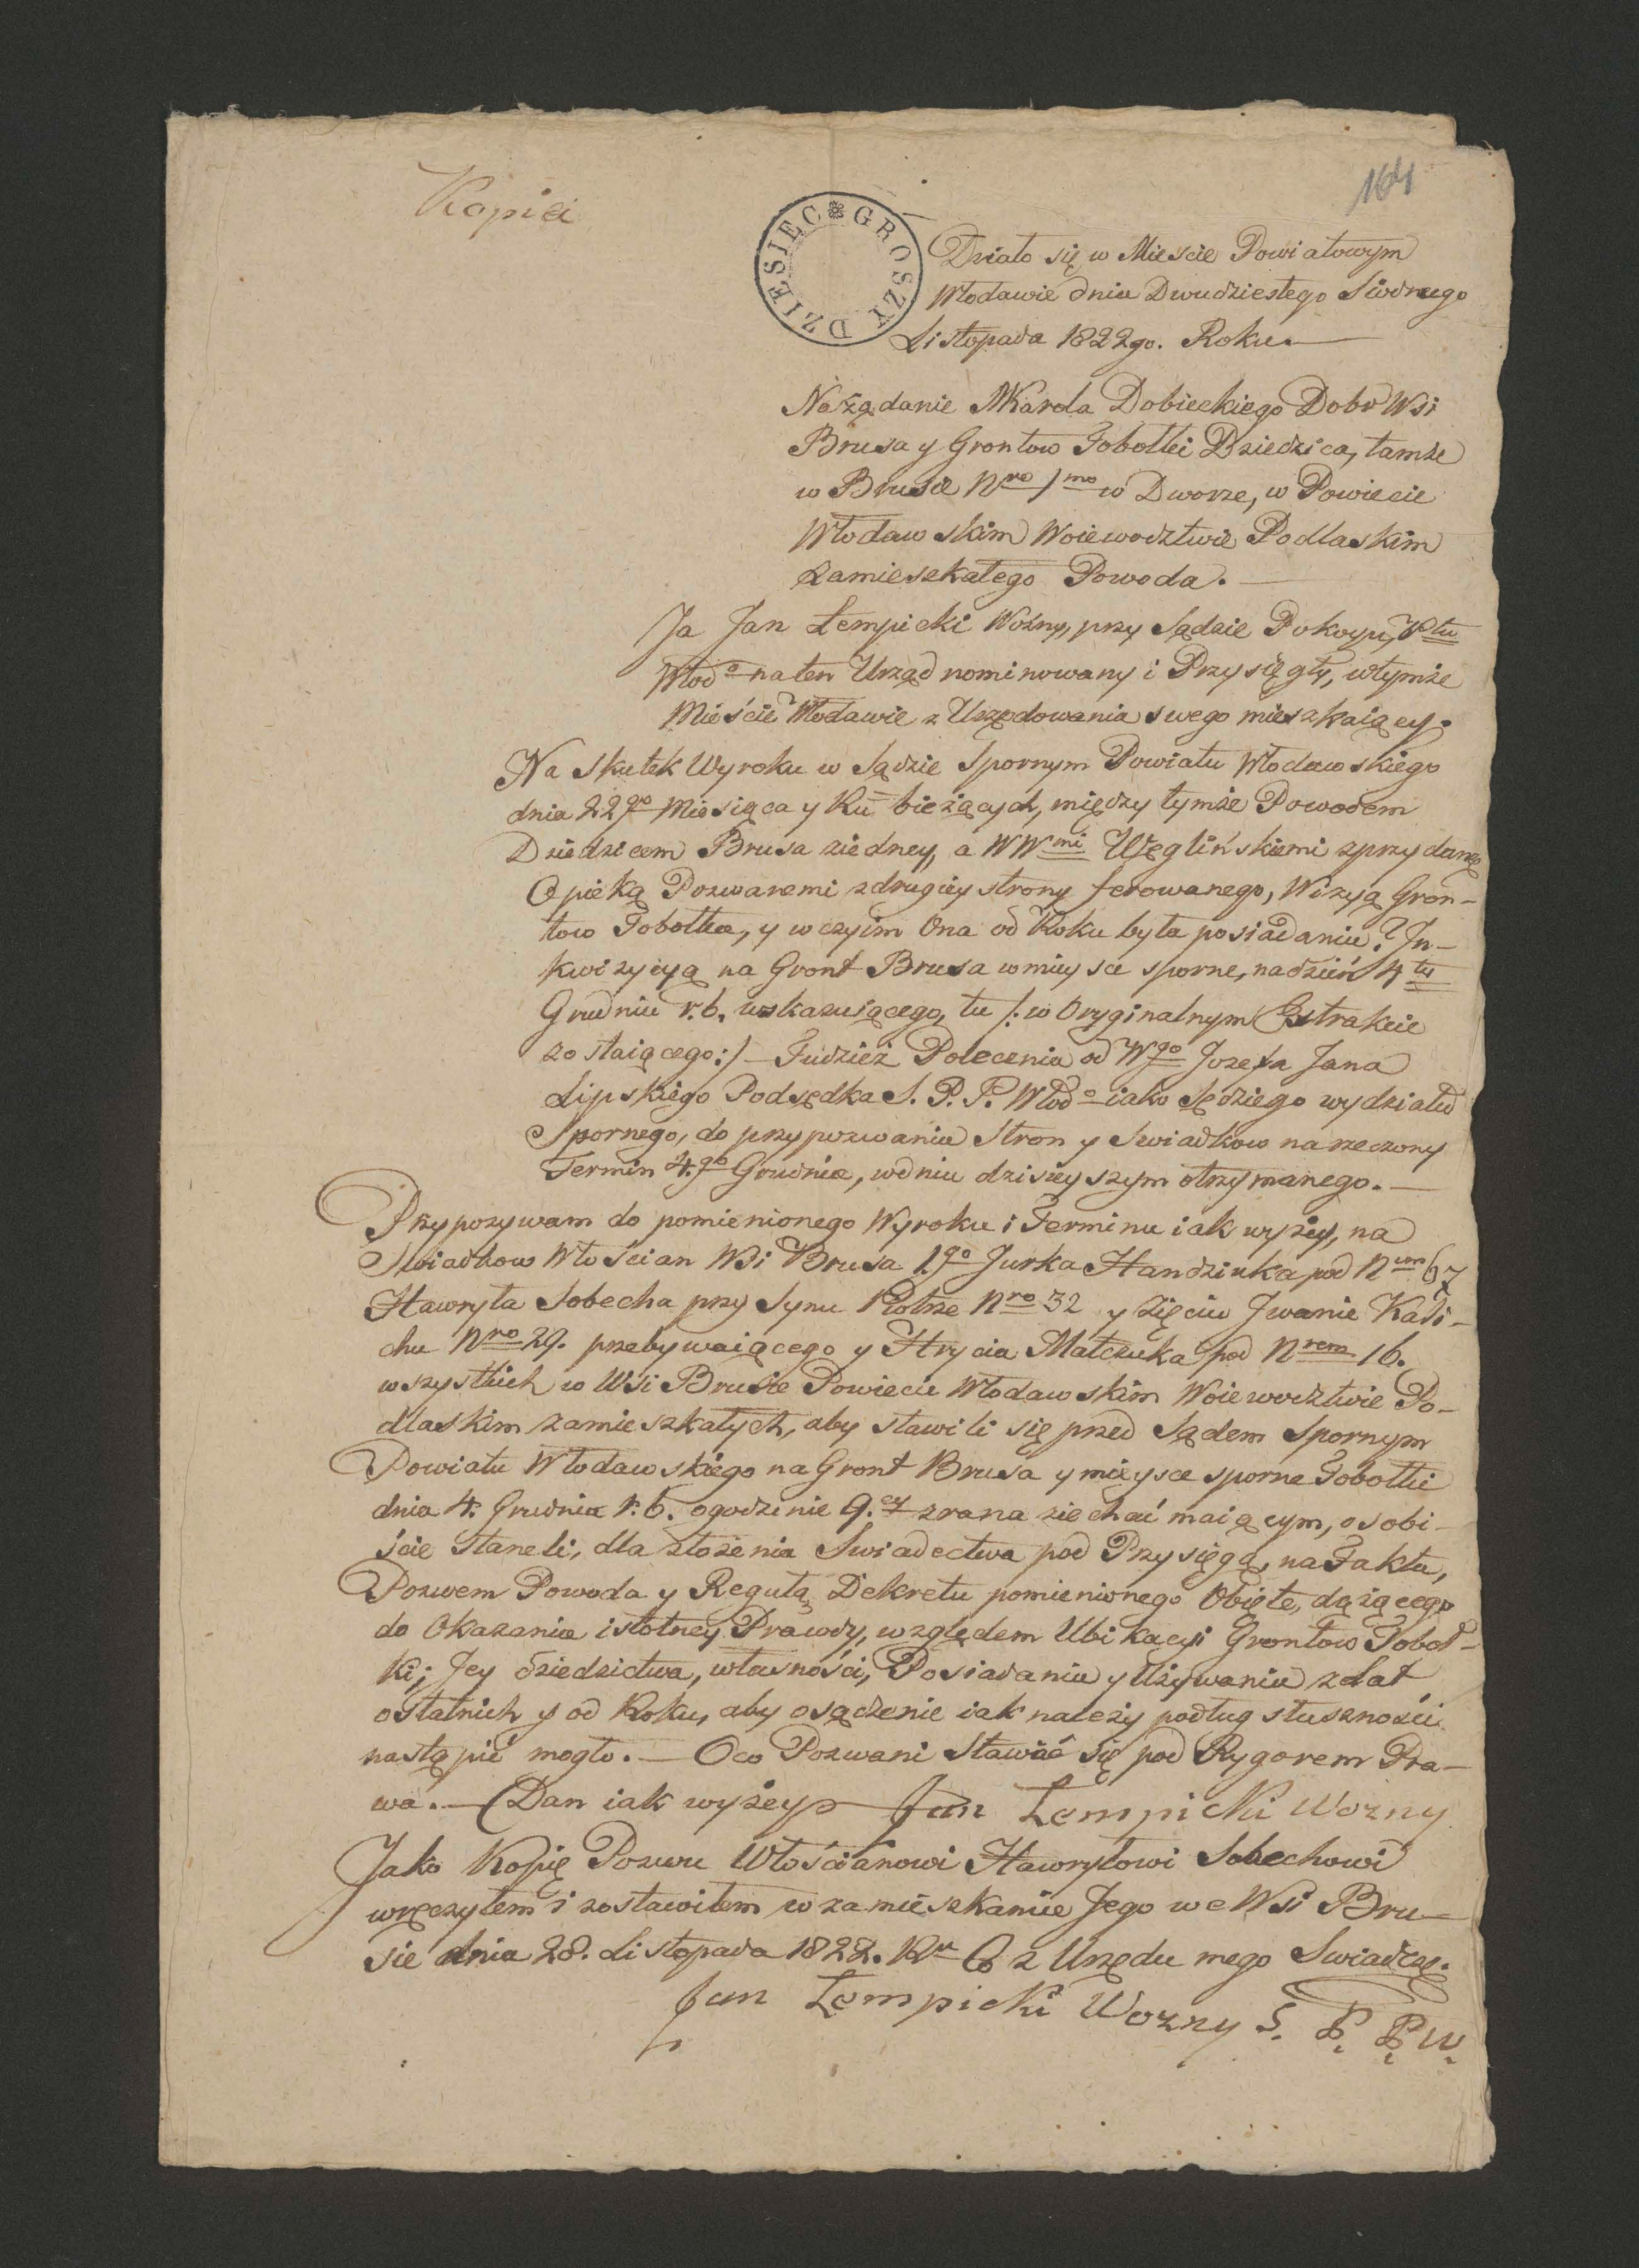 Kopia
164
DZIESIĘC GROSZY
Działo się w Mieście Powiatowym
Włodawie dnia Dwudziestego Siódmego
Listopada 1822go. Roku.
Na żądanie Karola Dobieckiego Dobr Wsi
Brusa y Grontow Tobołki Dziedzica, tamże
w Brusie Nro 1mo w Dworze, w Powiecie
Włodawskim Woiewodztwie Podlaskim
Zamieszkałego Powoda.
Ja Jan Łempicki Woźny, przy Sądzie Pokoyu, Ptu
Włodo na ten Urząd nominowany i Przysięgły, w tymże
Mieście Włodawie z Urzędowania swego mieszkaiący.
Na Skutek Wyroku w Sądzie Spornym Powiatu Włodawskiego
dnia 22go Miesiąca y Ru bieżących, między tymże Powodem
Dziedzicem Brusa ziedney, a WWmi Węglińskiemi z przydaną
Opieką Pozwanemi z drugiey strony ferowanego, Wizyą Gron-
tow Tobołka, y w czyim Ona od Roku była posiadaniu? In-
kwizycyą na Gront Brusa w mieysce sporne, na dzień 4ty
Grudnia r. b. wskazuiącego, tu /: w Oryginalnym Extrakcie
zostaiącego :/ – Tudzież Polecenia od Wgo Jozefa Jana
Lipskiego Podsędka S. P. P. Włodo iako Sędziego wydziału
Spornego, do przypozwania Stron y Swiadkow na rzeczony
Termin 4go Grudnia, w dniu dzisieyszym otrzymanego. –
Przypozywam do pomienionego Wyroku i Terminu iak wyżey, na
Swiadkow Włościan Wsi Brusa 1go Jurka Handziuka pod Nrem 67
Hawryła Sobecha przy Synu Piotrze Nro 32 y Zięciu Jwanie Kali-
chu Nro 29. przebywaiącego y Hrycia Matczuka pod Nrem 16.
wszystkich w Wsi Brusie Powiecie Włodawskim Woiewodztwie Po-
dlaskim zamieszkałych, aby stawili się przed Sądem Spornym
Powiatu Włodawskiego na Gront Brusa y mieysce sporne Tobołki
dnia 4. Grudnia r. b. o godzinie 9.ey z rana ziechać maiącym, osobi-
ście staneli, dla złożenia Swiadectwa pod Przysięgą, na Fakta,
Pozwem Powoda y Regułą Dekretu pomienionego Obięte, dążącego
do Okazania istotney Prawdy, względem Ubikacyi Grontow Toboł-
ki; Jey dziedzictwa, własności, Posiadania y Używania z Lat
ostatnich y od Roku, aby osądzenie iak należy podług słuszności
nastąpić mogło. – Oco Pozwani Stawić się pod Rygorem Pra-
wa. – Dan iak wyżey – Jan Łempicki Wozny
Jako Kopię Pozwu Włościanowi Hawryłowi Sobechowi
wręczyłem i zostawiłem w zamieszkaniu Jego we Wsi Bru-
sie dnia 28. Listopada 1822. Ru Co z Urzędu mego Swiadczę.
Jan Łempicki Wozny S. P. P. W.